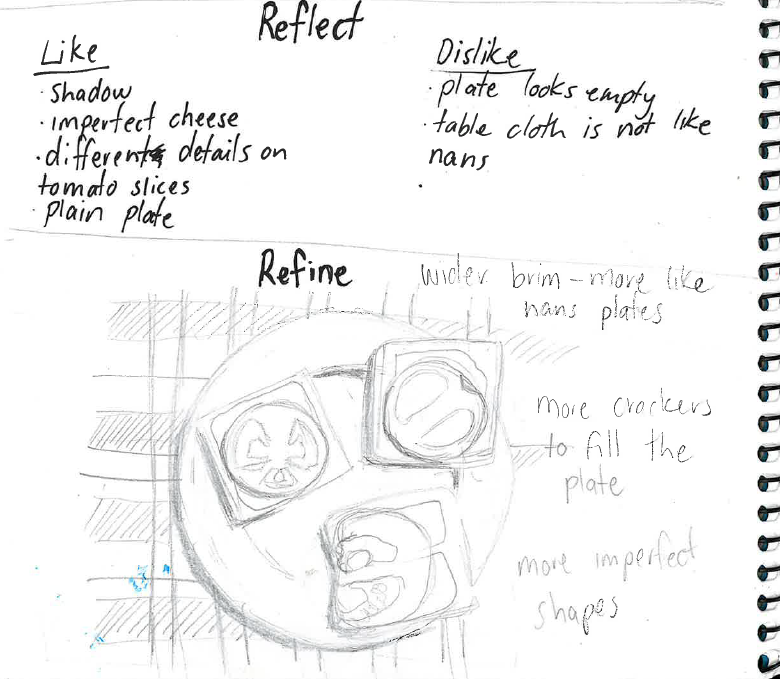 Reflect
Like
· shadow
· imperfect cheese
· different details on
tomato slices
· plain plate
Dislike
· plate looks empty
· table cloth is not like
nans
·
Refine
wider brim - more like
nans plates
more crackers
to fill the
plate
more imperfect
shapes